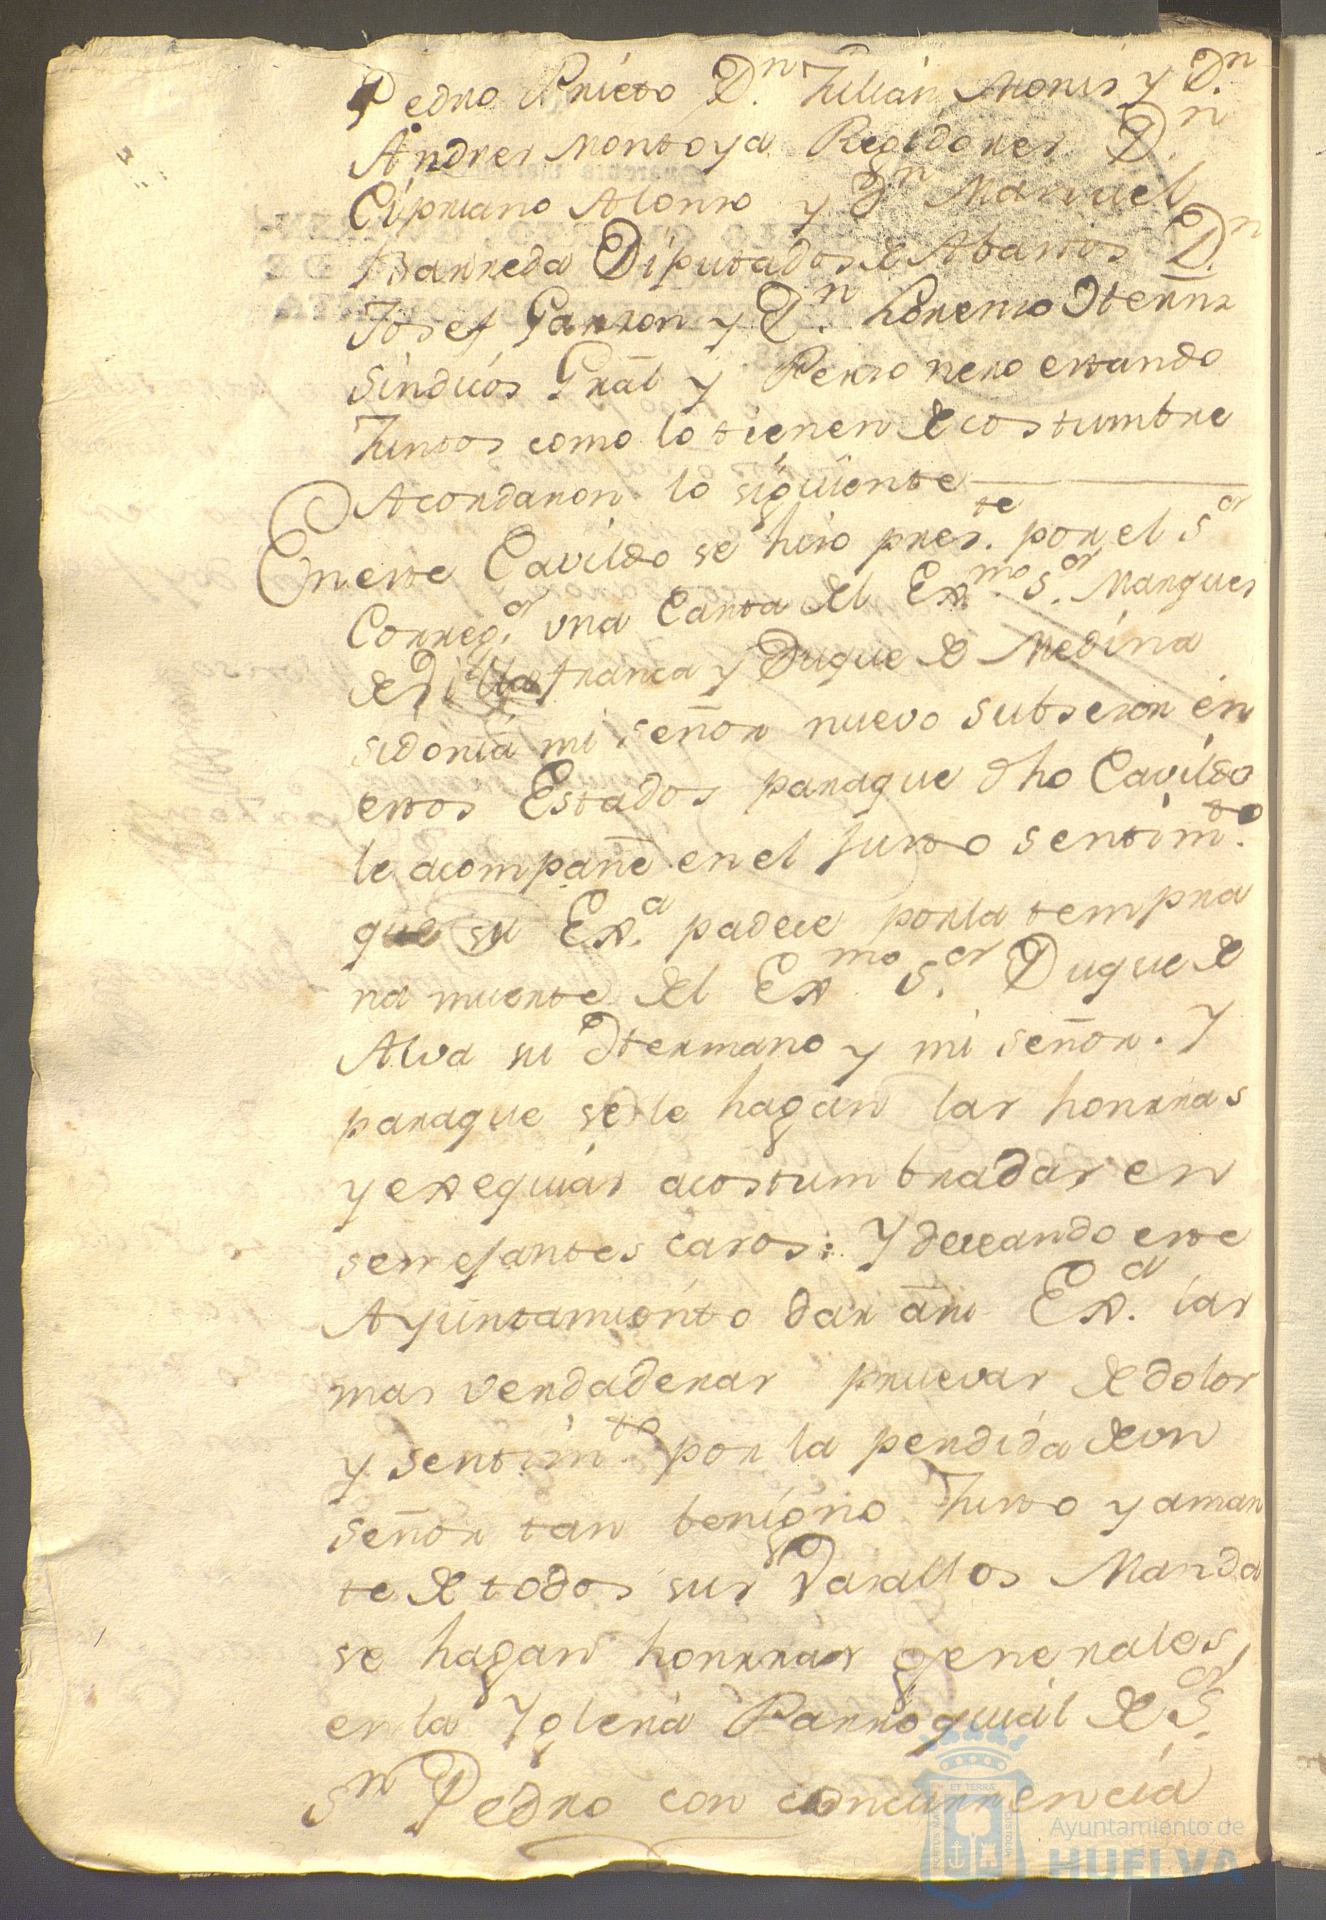 Pedro Prieto D.n Julián Monis y D.n
Andres Montoya Regidores D.n
Cipriano Alonso y D.n Manuel
Barreda Diputados de Abastos D.n
Josef Garzon y D.n Lorenzo Herñz
Sindicos Grãl y Personero estando
Juntos como lo tienen de costumbre
Acordaron lo siguiente
En este Cavildo se hizo pres.te por el S.or
Correg.or una Carta del Ex.mo S.or Marques
de Villafranca y Duque de Medina
sidonia mi señor nuevo subsesor en
estos Estados paraque dho Cavildo
le acompañe en el Justo sentim.to
que su Ex.a padece por la tempra
na muerte del Ex.mo S.or Duque de
Alva su Hermano y mi señor. Y
paraque se le hagan las honrras
y exequias acostumbradas en
semejantes casos: Y deceando este
Ayuntamiento dar a su Ex.a las
mas verdaderas pruevas de dolor
y sentim.to por la perdida de un
señor tan benigno Justo y aman
te de todos sus Vasallos Manda
se hagan honrras generales
en la Yglesia Parroquial de S.or
S.n Pedro con concurrencia
Ayuntamiento de
HUELVA